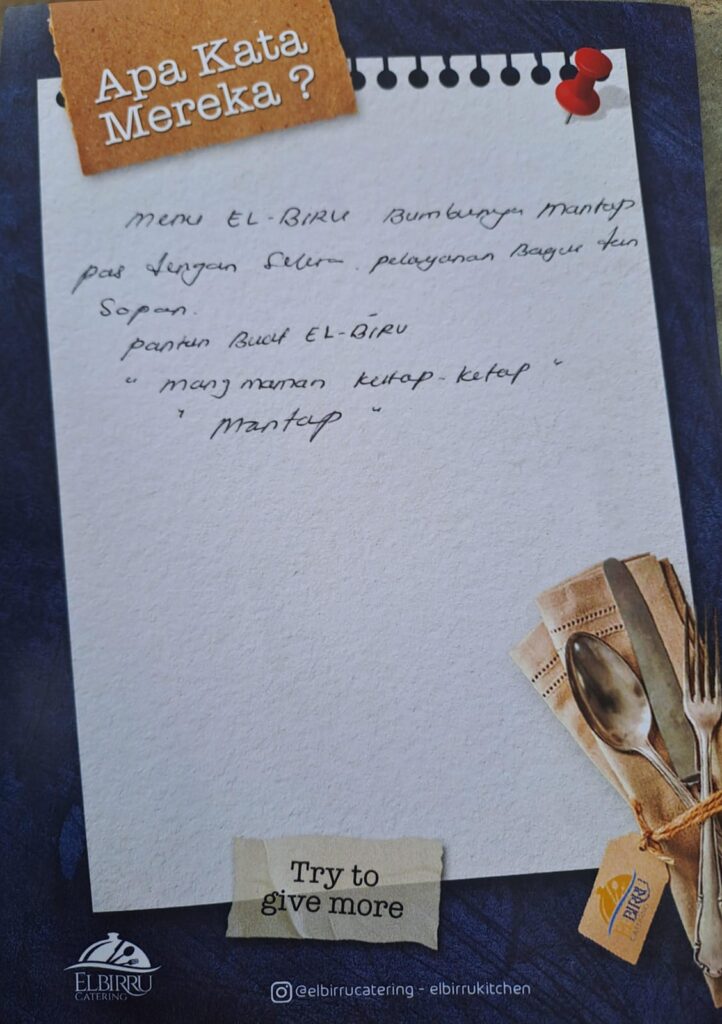 Apa Kata
Mereka ?
Menu EL-BIRU Bumbunya Mantap
pas dengan Selera. pelayanan Bagus dan
Sopan.
pantun Buat EL-BIRU
" mang maman ketap-ketap "
" Mantap "
Try to
give more
ELBIRRU
CATERING
ELBIRRU
CATERING
@elbirrucatering - elbirrukitchen